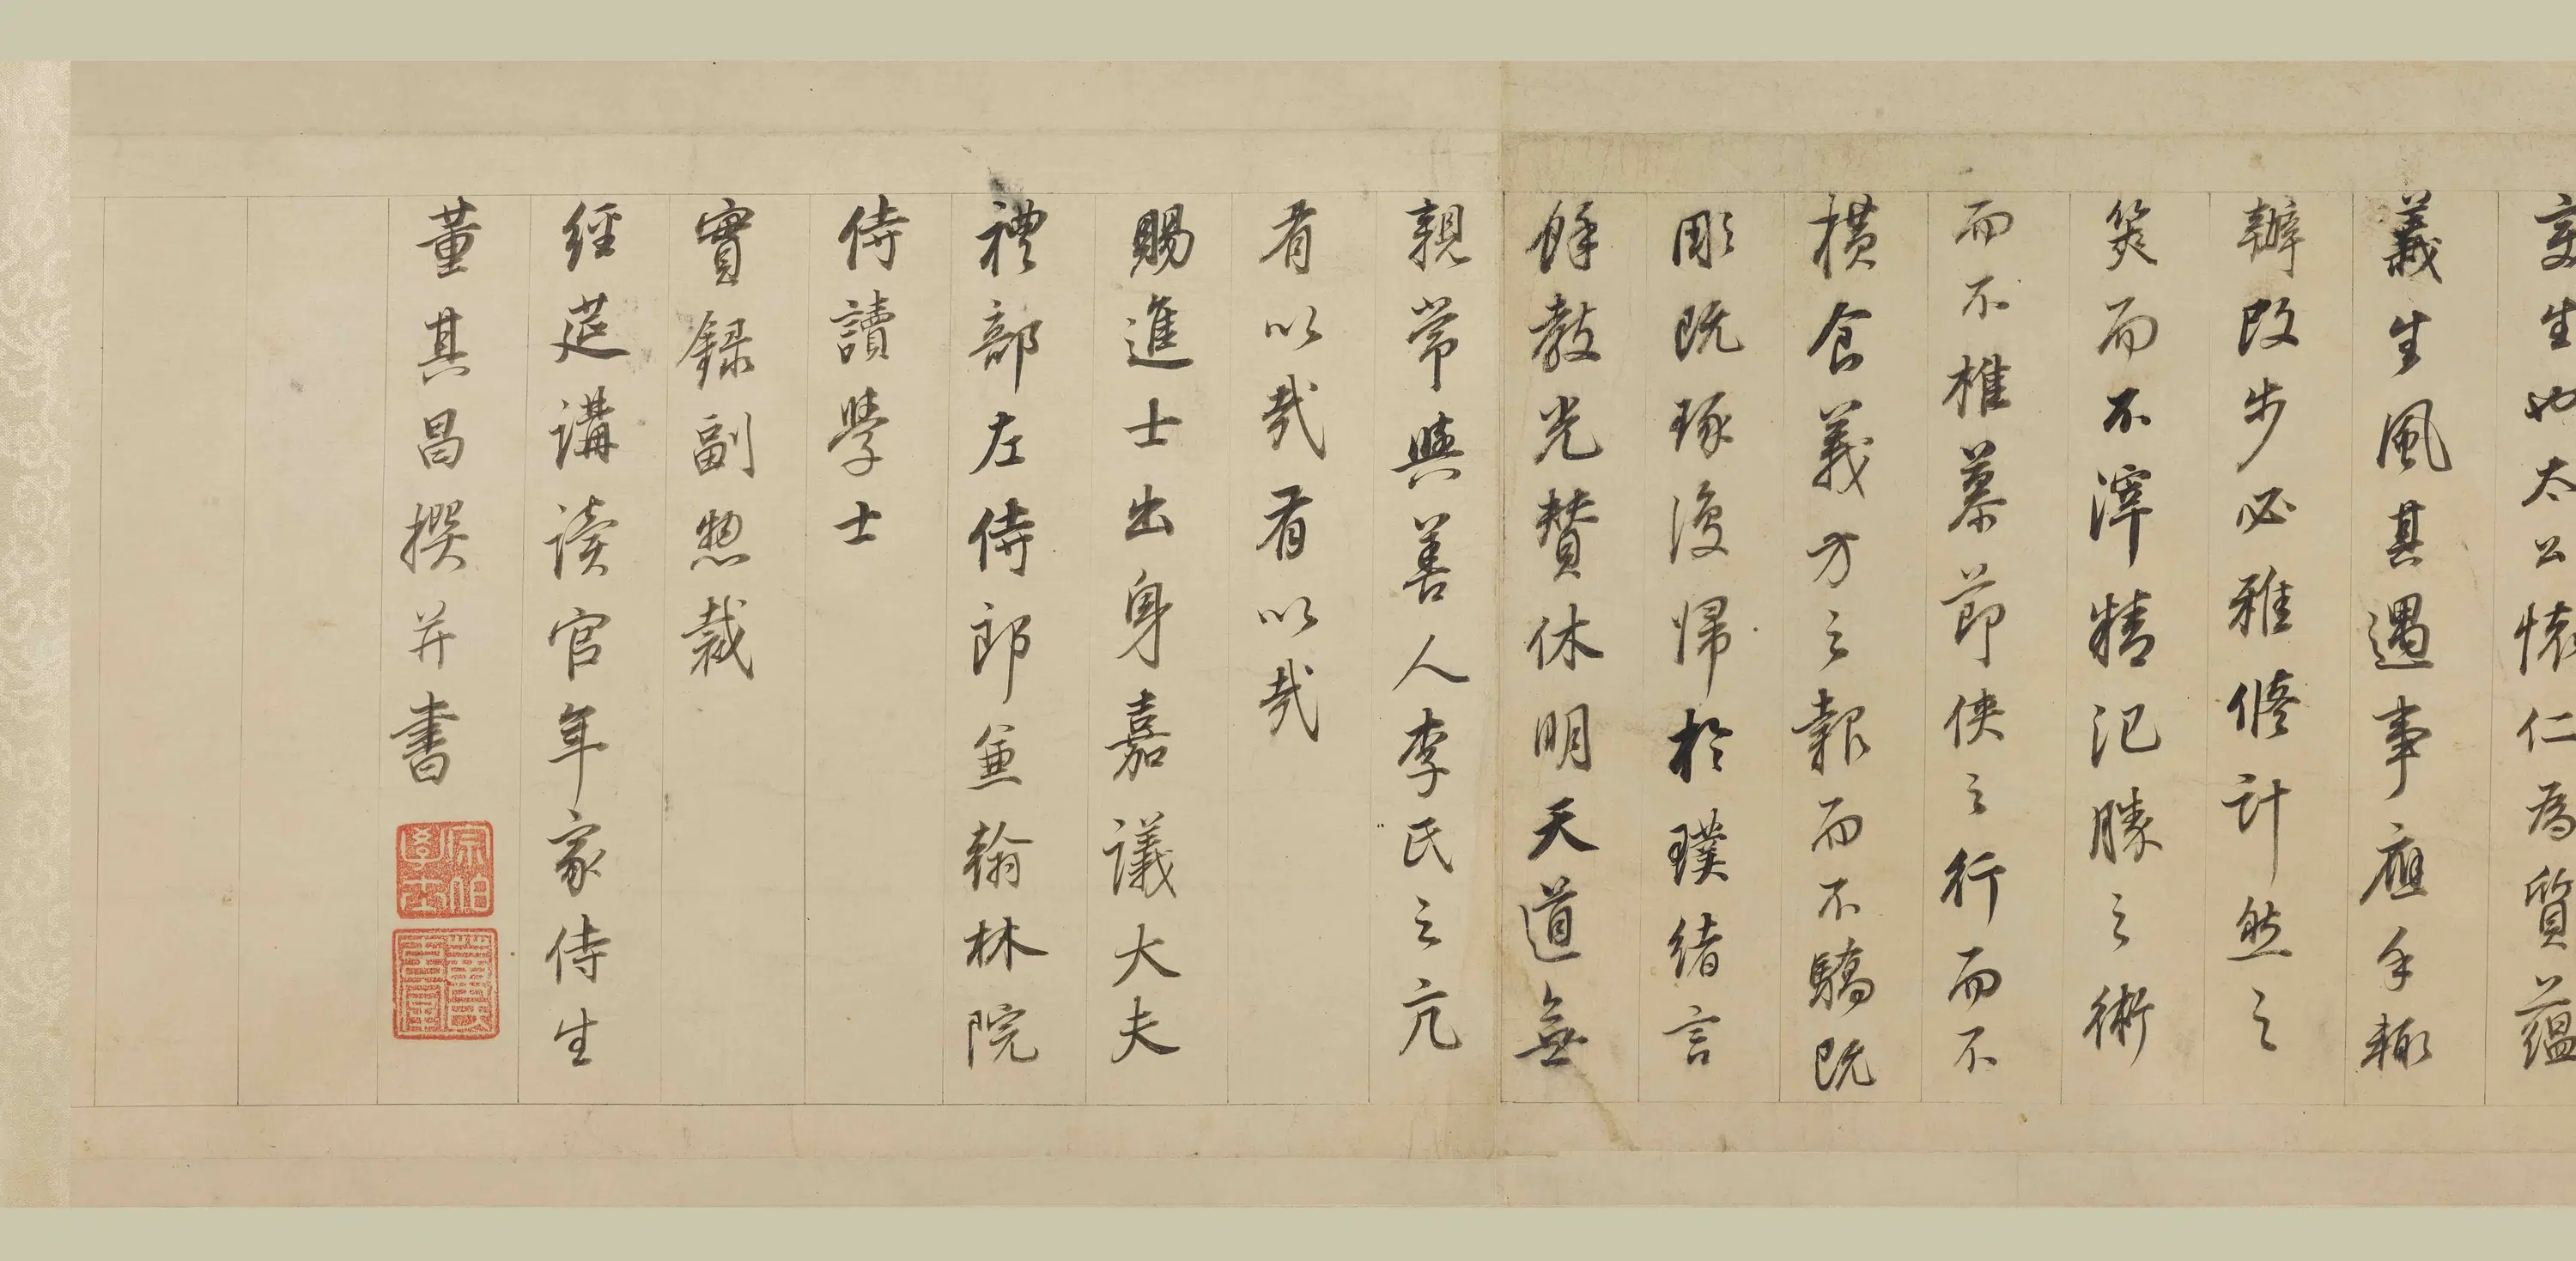 生也太公懷仁為質蘊
義生風其遇事應手輒
辦改步必雅脩計然之
筴而不滓精氾勝之術
而不椎慕節俠之行而不
橫食義方之報而不驕既
彫既琢復歸於璞緒言
餘教光贊休明天道無
親常與善人李氏之亢
有以哉有以哉
賜進士出身嘉議大夫
禮部左侍郎兼翰林院
侍讀學士
實録副惣裁
經筵講讀官年家侍生
董其昌撰并書
宗伯學士
董氏玄宰